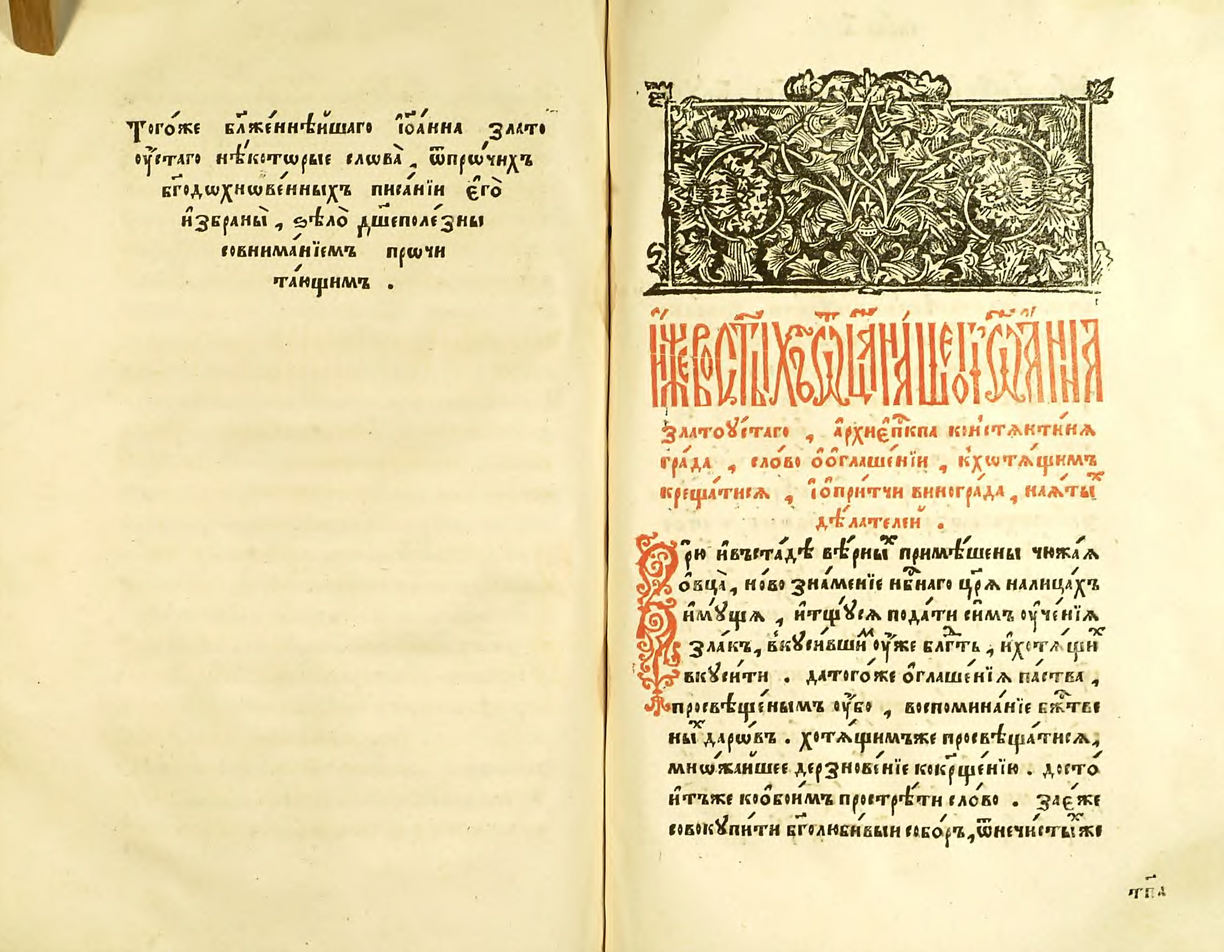 Тогѡ́же бл҃же́ннѣйшаго і҆ѡа́нна злато
оу҆́стаго нѣ́котѡрые словеса̀, ѿпрѡ́чихъ
бг҃одѡхнѡве́нныхъ писа́нїи є҆гѡ̀
и҆збраны̀, ѕѣлѡ̀ дш҃еполе́зны
совнима́нїемъ прѡчи
та́ющимъ .
И҆́же во ст҃ы́хъ ѻ҆ц҃а̀ на́шегѡ і҆ѡа́нна
златоꙋ́стаго , а҆рхїє҆пⷭ҇кпа конⸯстѧнти́нѧ
гра́да , сло́во ѡ҆ѡ҆глаше́нїи , кхѡтѧ́щимъ
креща́тисѧ , і҆ѻ҆при́тчи виногра́да , наѧ́тыⷯ
дѣ́лателей .
Зрю̀ и҆въста́дѣ вѣ́рныⷯ примѣ́шены чюжа́ѧ
о҆́вца̀, но́во зна́менїе нбⷭ҇наго цр҃ѧ̀ налица́хъ
и҆мꙋ́щѧ , и҆тщꙋ́сѧ пода́ти си́мъ оу҆че́нїѧ
зла́къ, вкꙋси́вшиⷨ оу҆́же блгⷣть , и҆хотѧ́щиⷯ
вкꙋси́ти . датого́же о҆глаше́нїѧ па́ства ,
просвѣще́нымъ оу҆́бо , воспомина́нїе бжⷭ҇тве
ныⷯ дарѡ́въ . хотѧ́щимъже просвѣща́тисѧ,
мнѡ́жайшее дерзнове́нїе кокрⷳще́нїю . досто́
и҆тъже коѻ҆бои́мъ прострѣ́ти сло́во . зае́же
совокꙋпи́ти бг҃олюби́выи собо́ръ, ѿнечи́стыⷯже
тп҃а